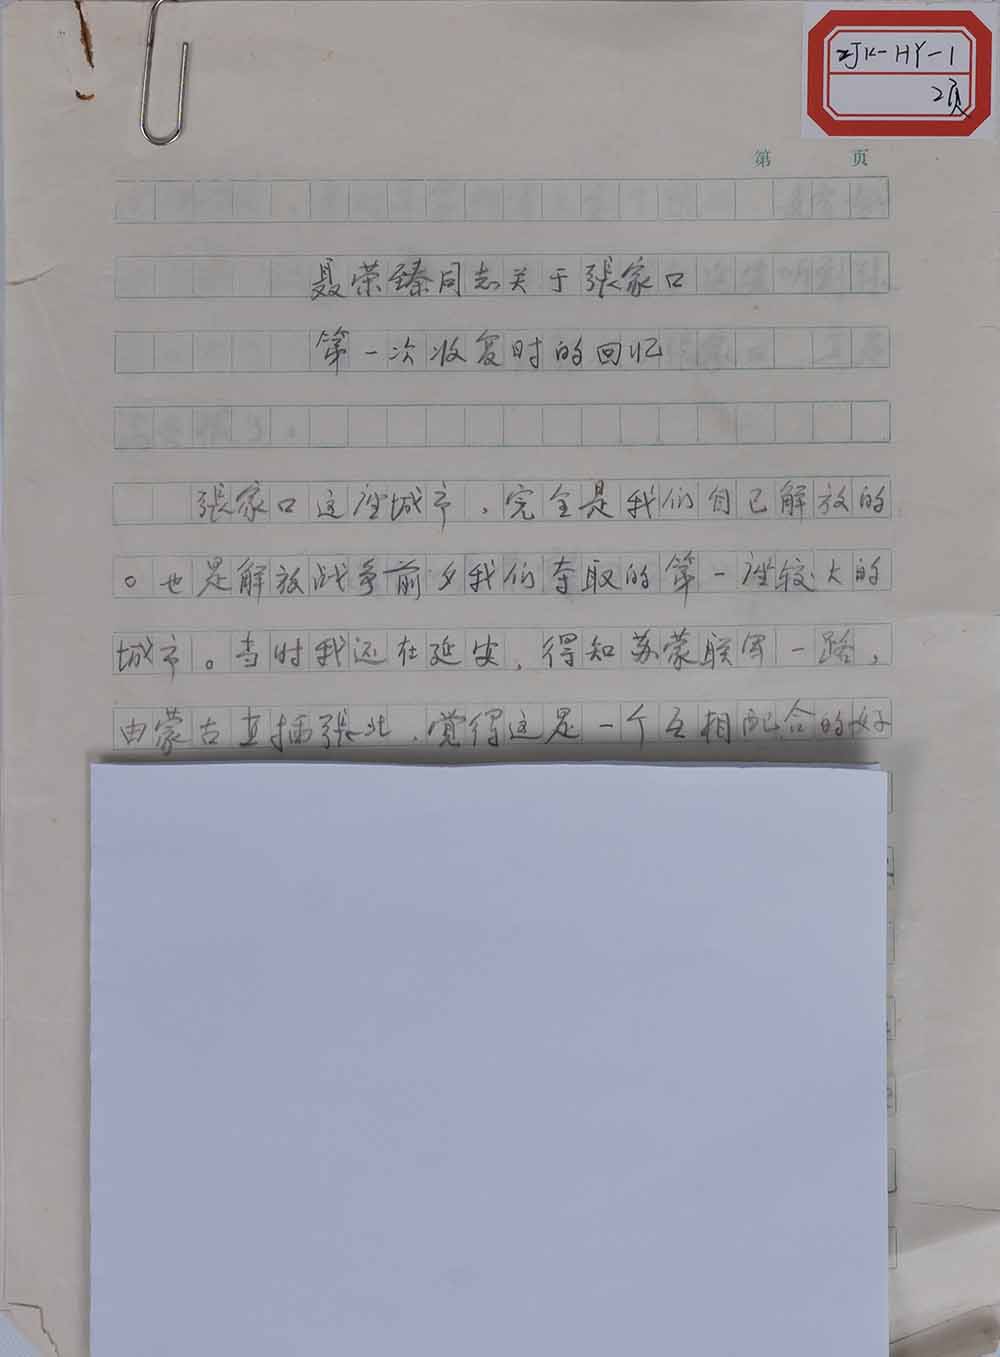 ZJK-HY-1
2页
第 页
聂荣臻同志关于張家口
第一次收复时的回忆
張家口这座城市，完全是我们自己解放的
。也是解放战争前夕我们夺取的第一座较大的
城市。当时我还在延安，得知苏蒙联军一路，
由蒙古直插張北，觉得这是一个互相配合的好